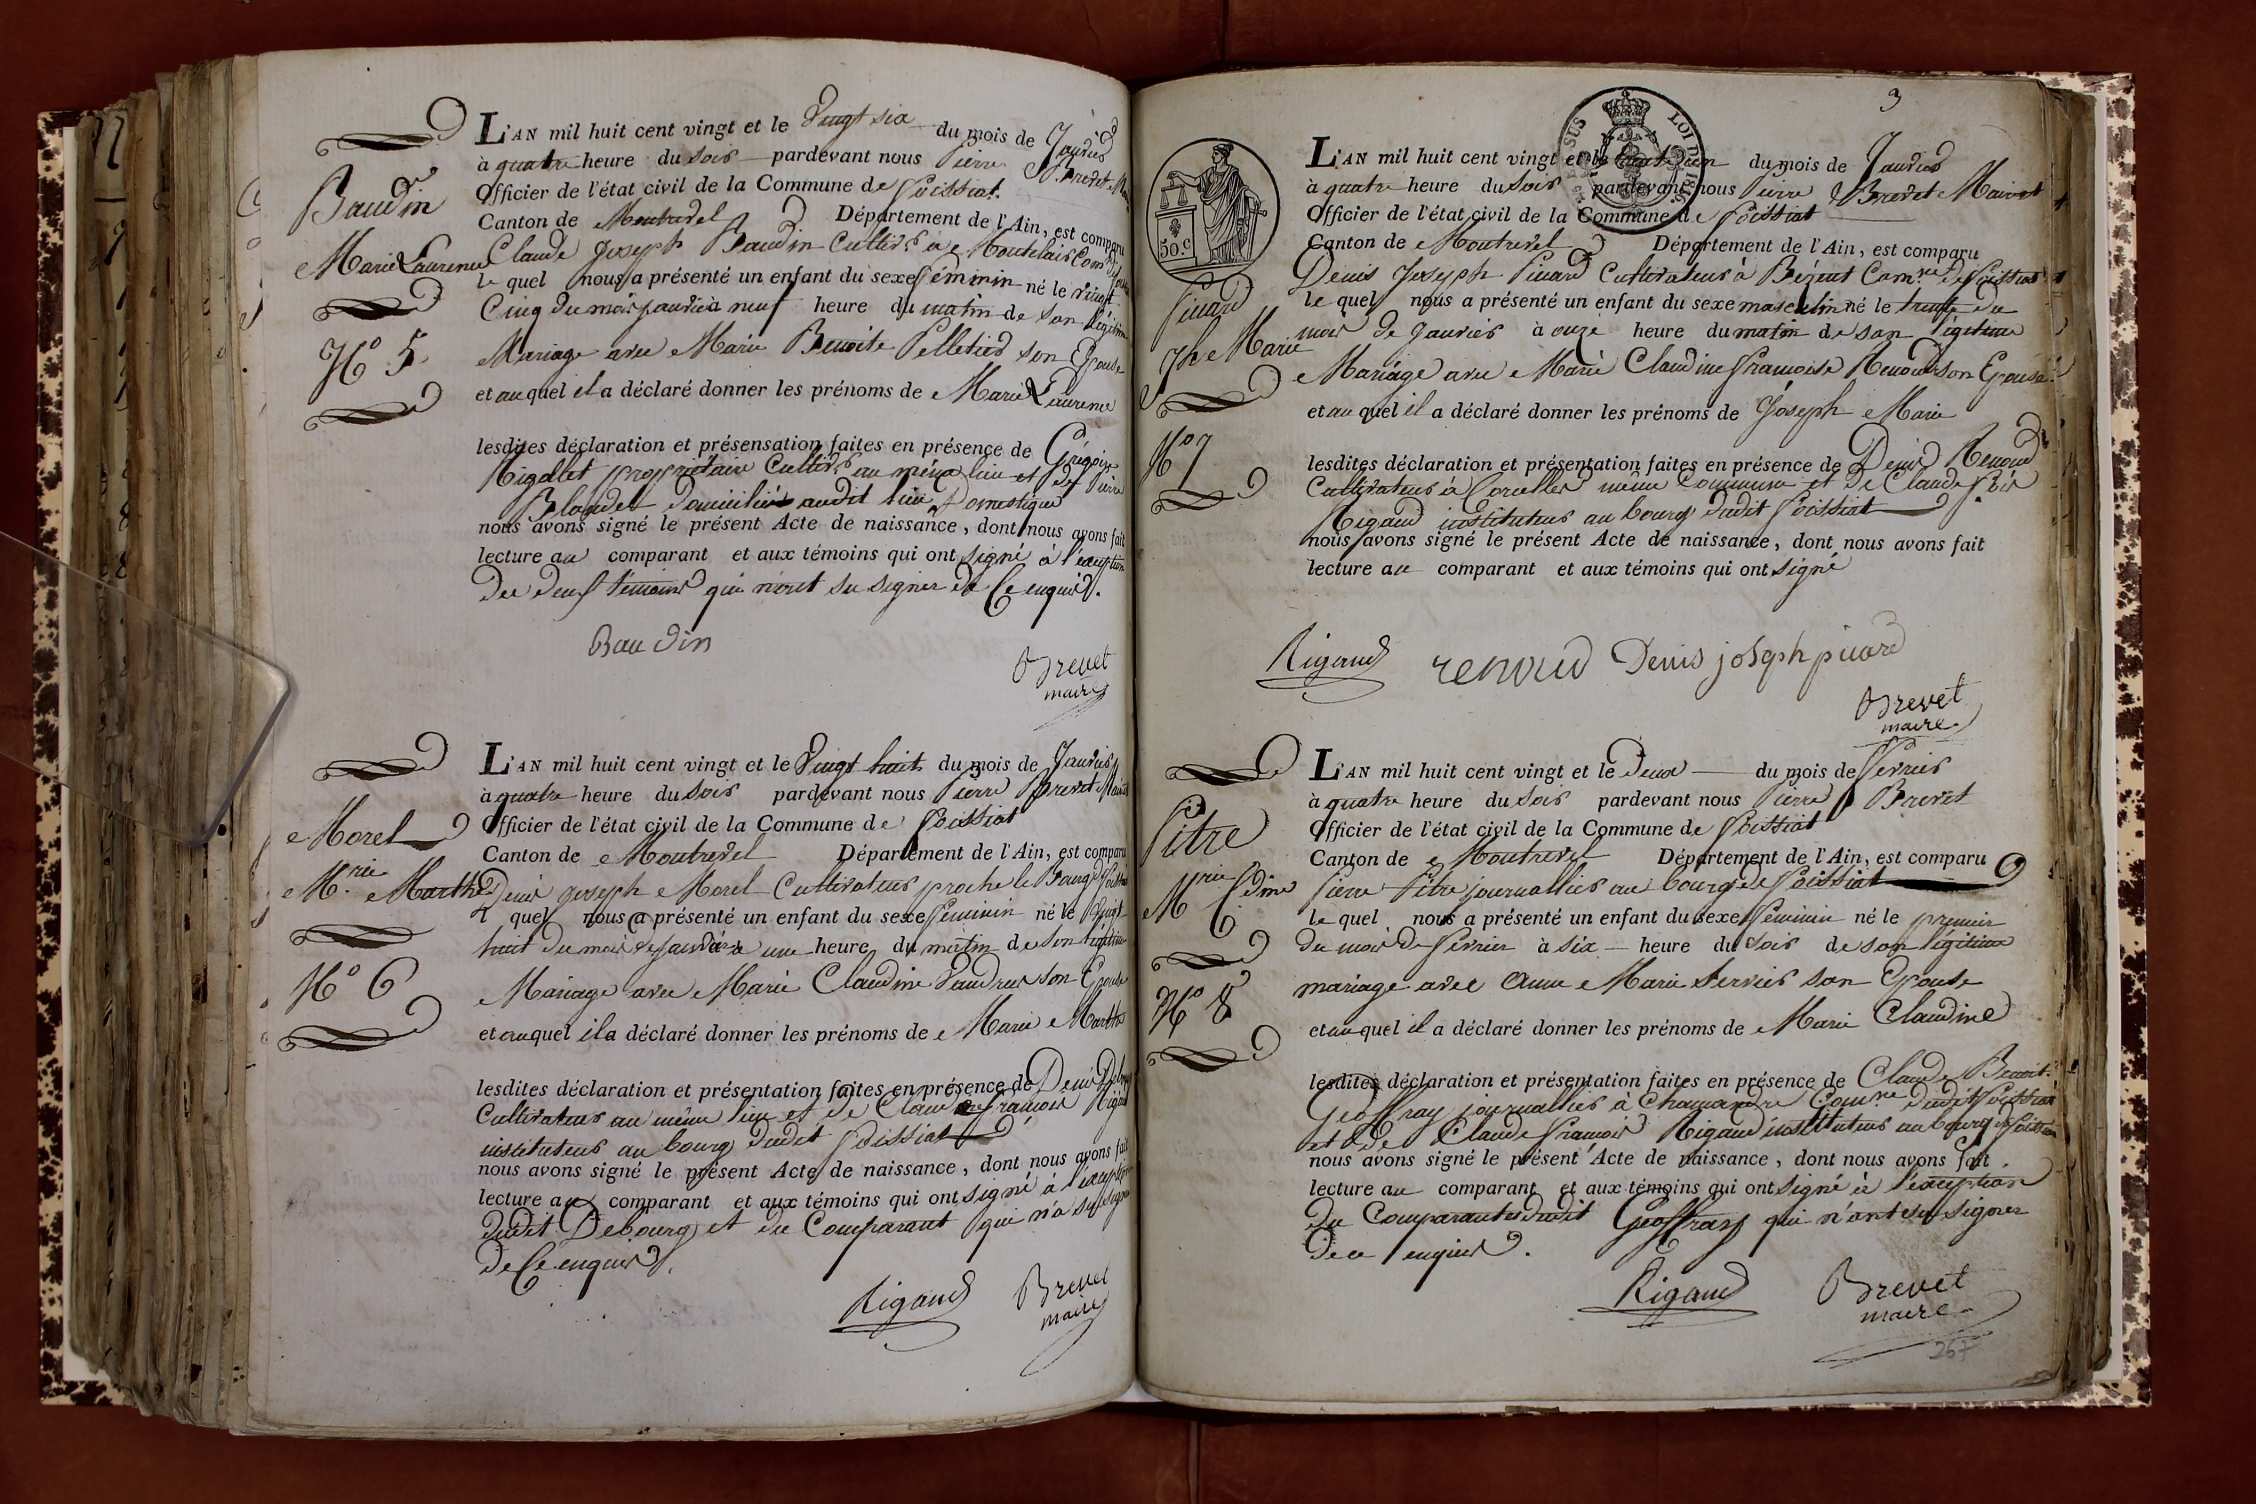 Baudin
Marie Laurence
N.o 5
L'AN mil huit cent vingt et le Vingt six du mois de Janvier
à quatre heure du soir pardevant nous Pierre Brevet
Officier de l'état civil de la Commune de Foissiat
Canton de Montrevel Département de l'Ain, est comparu
Claude Joseph Baudin Cultiv.r à
le quel nous a présenté un enfant du sexe féminin né le vingt
Cinq du mois janvier à neuf heure du matin de son légitime
Mariage avec Marie Benoite Pelletier son Epouse
et au quel il a déclaré donner les prénoms de Marie Laurence
lesdites déclaration et présensation faites en présence de Grégoire
Rigollet propriétaire Cultiv.r au même lieu et de Pierre
Blondel domicilié audit lieu Domestique
nous avons signé le présent Acte de naissance, dont nous avons fait
lecture au comparant et aux témoins qui ont signé à l'exception
des deux témoins qui n'ont su signer de Ce enquis.
Baudin
Brevet
maire
Morel
M.rie Marthe
N.o 6
L'AN mil huit cent vingt et le Vingt huit du mois de Janvier
à quatre heure du soir pardevant nous Pierre Brevet Maire
Officier de l'état civil de la Commune de Foissiat
Canton de Montrevel Département de l'Ain, est comparu
Denis Joseph Morel Cultivateur proche le Bourg
quel nous a présenté un enfant du sexe féminin né le Vingt
huit du mois de janvier à une heure du matin de son légitime
Mariage avec Marie Claudine son Epouse
et au quel il a déclaré donner les prénoms de Marie Marthe
lesdites déclaration et présentation faites en présence de Denis Debourg
Cultivateur au même lieu et de Claude françois Rigaud
instituteur au bourg dudit Foissiat
nous avons signé le présent Acte de naissance, dont nous avons fait
lecture au comparant et aux témoins qui ont signé à l'exception
dudit Debourg et du Comparant qui n'a su signer
de Ce enquis.
Rigaud
Brevet
maire
3
SUS LOI DE 1816
50.c
Picard
Jph Marie
N.o 7
L'AN mil huit cent vingt et le trente un du mois de Janvier
à quatre heure du soir pardevant nous Pierre Brevet Maire
Officier de l'état civil de la Commune de Foissiat
Canton de Montrevel Département de l'Ain, est comparu
Denis Joseph Picard Cultivateur à Com.ne de Foissiat
le quel nous a présenté un enfant du sexe masculin né le trente du
mois de Janvier à onze heure du matin de son légitime
Mariage avec Marie Claudine françoise Renoud son Epouse
et au quel il a déclaré donner les prénoms de Joseph Marie
lesdites déclaration et présentation faites en présence de Denis Renoud
Cultivateur à Corcelles même Commune et de Claude f.ois
Rigaud instituteur au bourg dudit Foissiat
nous avons signé le présent Acte de naissance, dont nous avons fait
lecture au comparant et aux témoins qui ont signé
Rigaud renoud Denis joseph picard
Brevet
maire
Pitre
M.rie C.dine
N.o 8
L'AN mil huit cent vingt et le Deux du mois de février
à quatre heure du soir pardevant nous Pierre Brevet
Officier de l'état civil de la Commune de Foissiat
Canton de Montrevel Département de l'Ain, est comparu
Pierre Pitre journallier au bourg de Foissiat
le quel nous a présenté un enfant du sexe féminin né le premier
du mois de février à six heure du soir de son légitime
mariage avec Anne Marie Servier son Epouse
et au quel il a déclaré donner les prénoms de Marie Claudine
lesdites déclaration et présentation faites en présence de Claude Benoit
Geoffray journallier à Chamandre Com.ne dudit Foissiat
et de Claude françois Rigaud instituteur au bourg de Foissiat
nous avons signé le présent Acte de naissance, dont nous avons fait
lecture au comparant et aux témoins qui ont signé à l'exception
du Comparant et dudit Geoffray qui n'ont su signer
de ce enquis.
Rigaud
Brevet
maire
267